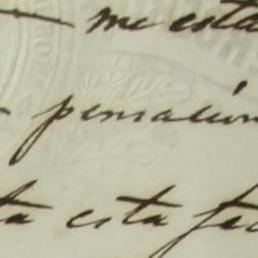 me esta
pensación
ta esta fec